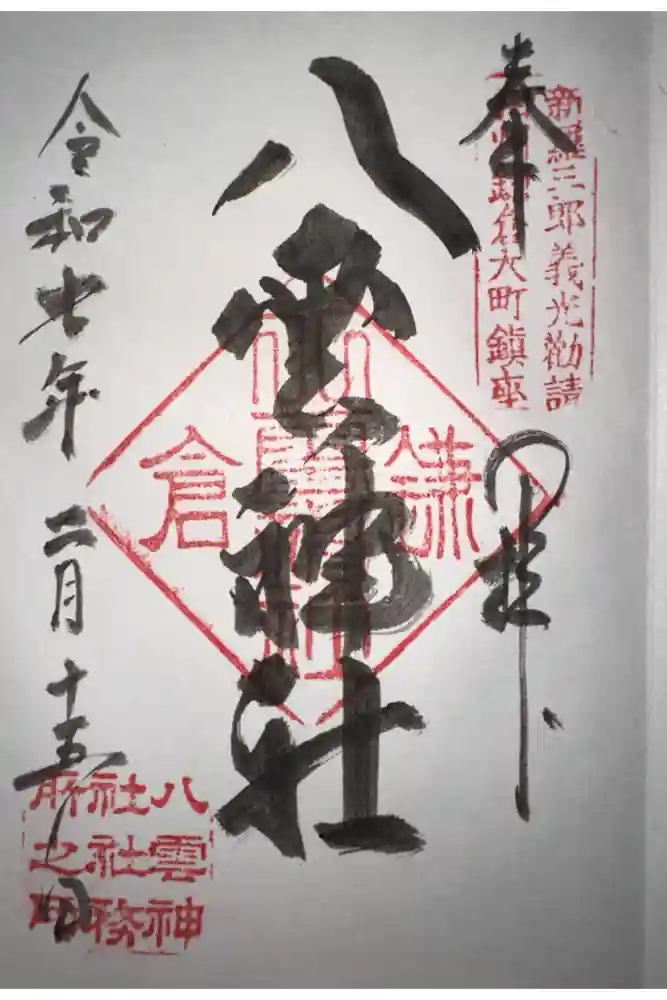 奉拝
新羅三郎義光勧請
相州鎌倉大町鎮座
八雲神社
鎌倉
令和七年 二月十五日
八雲神
社社務
所之印